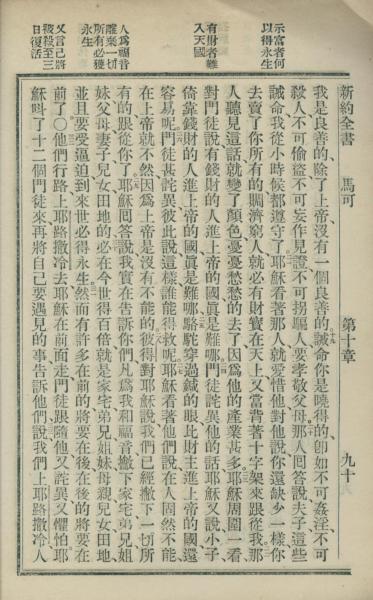 新約全書
馬可
第十章
九十
示富者何
以得永生
有財者難
入天國
人爲福音
離棄一切
所有必獲
永生
又言己將
被殺至三
日復活
我是良善的、除了上帝沒有一個良善的、誡命你是曉得的、卽如不可姦淫、不可
殺人、不可偷盜、不可妄作見證、不可拐騙人、要孝敬父母、那人回答說、夫子這些
誡命、我從小時候都遵守了、耶穌看著那人、就愛惜他、對他說、你還缺少一樣、你
去賣了你所有的、賙濟窮人、就必有財寶在天上、又當背著十字架來跟從我、那
人聽見這話、就變了顏色、憂憂愁愁的去了、因爲他的產業甚多、耶穌周圍一看、
對門徒說、有錢財的人進上帝的國、眞是難哪、門徒詫異他的話、耶穌又說、小子、
倚靠錢財的人進上帝的國、眞是難哪、駱駝穿過鍼的眼、比財主進上帝的國還
容易呢、門徒甚詫異、彼此說、這樣誰能得救呢、耶穌看著他們說、在人固然不能、
在上帝就不然、因爲上帝是沒有不能的、彼得對耶穌說、我們已經撇下一切所
有的、跟從你了、耶穌回答說、我實在告訴你們、凡爲我和福音撇下家宅弟兄姐
妹父母妻子兒女田地的、必在今世得百倍、就是家宅弟兄姐妹母親兒女田地、
並且要受逼迫、到來世必得永生、然而有許多在前的將要在後、在後的將要在
前了、〇他們行路上耶路撒冷去、耶穌在前面走、門徒跟隨他、又詫異又懼怕、耶
穌叫了十二個門徒來、再將自己要遇見的事告訴他們說、我們上耶路撒冷、人